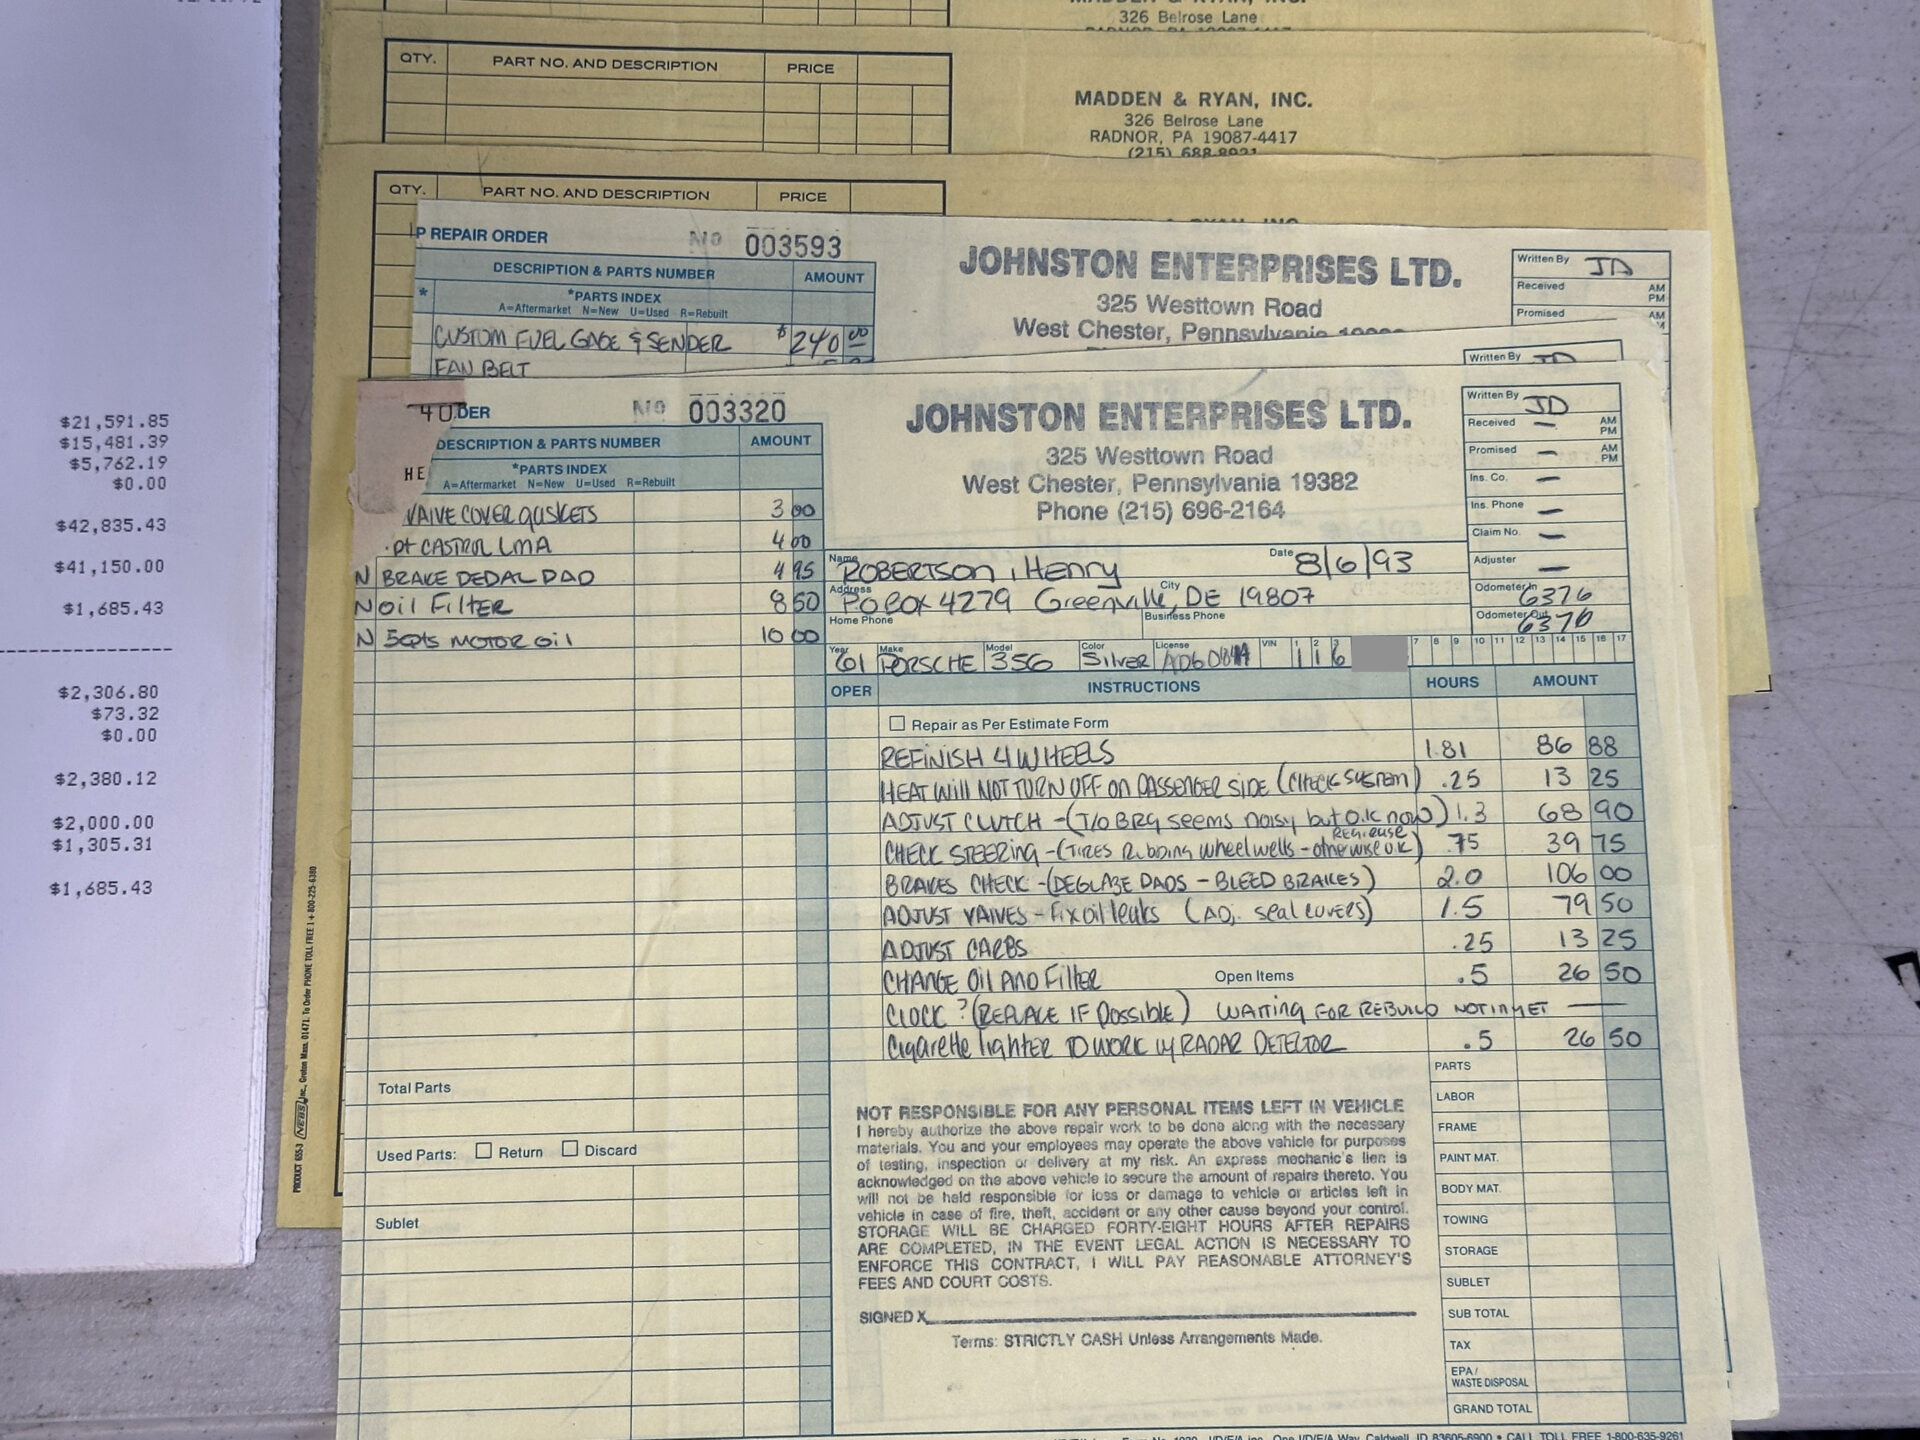 $21,591.85
$15,481.39
$5,762.19
$0.00
$42,835.43
$41,150.00
$1,685.43
$2,306.80
$73.32
$0.00
$2,380.12
$2,000.00
$1,305.31
$1,685.43
326 Belrose Lane
QTY. PART NO. AND DESCRIPTION PRICE
MADDEN & RYAN, INC.
326 Belrose Lane
RADNOR, PA 19087-4417
(215) 688-8921
QTY. PART NO. AND DESCRIPTION PRICE
PRODUCT 655-3 NEBS Inc., Groton Mass. 01471. To Order PHONE TOLL FREE 1 + 800-225-6380
P REPAIR ORDER No 003593
DESCRIPTION & PARTS NUMBER AMOUNT
* *PARTS INDEX
A=Aftermarket N=New U=Used R=Rebuilt
CUSTOM FUEL GAGE & SENDER $240 00
FAN BELT
JOHNSTON ENTERPRISES LTD.
325 Westtown Road
West Chester, Pennsylvania
Written By JD
Received AM PM
Promised
Written By JD
40
HE
DER No 003320
DESCRIPTION & PARTS NUMBER AMOUNT
*PARTS INDEX
A=Aftermarket N=New U=Used R=Rebuilt
VALVE COVER GASKETS 3 00
pt CASTROL LMA 4 00
N BRAKE PEDAL PAD 4 95
N OIL FILTER 8 50
N 5qts MOTOR OIL 10 00
Total Parts
Used Parts: Return Discard
Sublet
JOHNSTON ENTERPRISES LTD.
325 Westtown Road
West Chester, Pennsylvania 19382
Phone (215) 696-2164
Written By JD
Received — AM PM
Promised — AM PM
Ins. Co. —
Ins. Phone —
Claim No. —
Adjuster —
Odometer In 6376
Odometer Out 6376
Name ROBERTSON, Henry Date 8/6/93
Address PO BOX 4279 City Greenville, DE 19807
Home Phone Business Phone
Year 61 Make PORSCHE Model 356 Color Silver License VIN 1 1 2 1 3 6 7 8 9 10 11 12 13 14 15 16 17
OPER INSTRUCTIONS HOURS AMOUNT
Repair as Per Estimate Form
REFINISH 4 WHEELS 1.81 86 88
HEAT WILL NOT TURN OFF ON PASSENGER SIDE (CHECK SYSTEM) .25 13 25
ADJUST CLUTCH - (T/O BRG seems noisy but O.K now) 1.3 68 90
CHECK STEERING - (TIRES Rubbing wheel wells - otherwise OK) .75 39 75
BRAKES CHECK - (DEGLAZE PADS - BLEED BRAKES) 2.0 106 00
ADJUST VALVES - Fix oil leaks (ADJ. seal COVERS) 1.5 79 50
ADJUST CARBS .25 13 25
CHANGE OIL AND FILTER Open Items .5 26 50
CLOCK? (REPLACE IF POSSIBLE) WAITING FOR REBUILD NOT IN YET —
Cigarette lighter TO WORK W/ RADAR DETECTOR .5 26 50
NOT RESPONSIBLE FOR ANY PERSONAL ITEMS LEFT IN VEHICLE
I hereby authorize the above repair work to be done along with the necessary
materials. You and your employees may operate the above vehicle for purposes
of testing, inspection or delivery at my risk. An express mechanic's lien is
acknowledged on the above vehicle to secure the amount of repairs thereto. You
will not be held responsible for loss or damage to vehicle or articles left in
vehicle in case of fire, theft, accident or any other cause beyond your control.
STORAGE WILL BE CHARGED FORTY-EIGHT HOURS AFTER REPAIRS
ARE COMPLETED, IN THE EVENT LEGAL ACTION IS NECESSARY TO
ENFORCE THIS CONTRACT, I WILL PAY REASONABLE ATTORNEY'S
FEES AND COURT COSTS.
SIGNED X
Terms: STRICTLY CASH Unless Arrangements Made.
PARTS
LABOR
FRAME
PAINT MAT.
BODY MAT.
TOWING
STORAGE
SUBLET
SUB TOTAL
TAX
EPA/
WASTE DISPOSAL
GRAND TOTAL
Caldwell, ID 83605-6900 • CALL TOLL FREE 1-800-635-9261